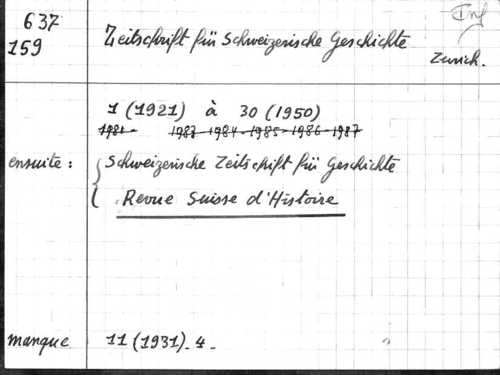 637
159
Zeitschrift für Schweizerische Geschichte
Zurich.
1 (1921) à 30 (1950)
1981 - 1983 - 1984 - 1985 - 1986 - 1987
ensuite : Schweizerische Zeitschrift für Geschichte
Revue Suisse d'Histoire
manque 11 (1931) - 4 -